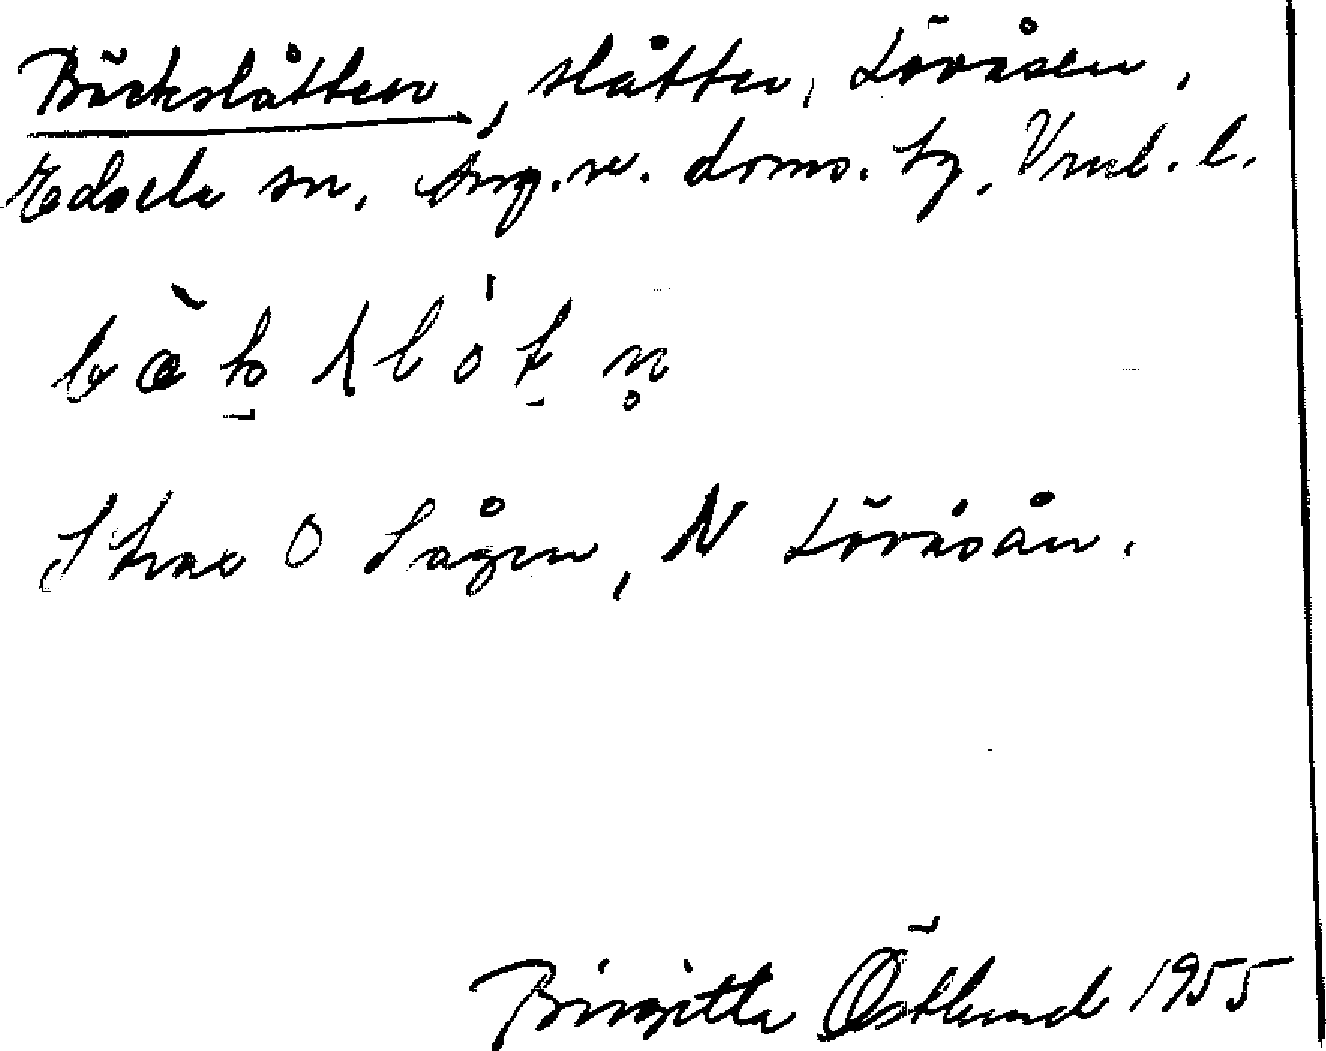 Bäckslåtten, slåtter, Lövåsen,
Edsele sn, Ång. v. doms. tg, Vnl. l.
Strax O Sågen, N Lövåsån.
Birgitta Östlund 1955